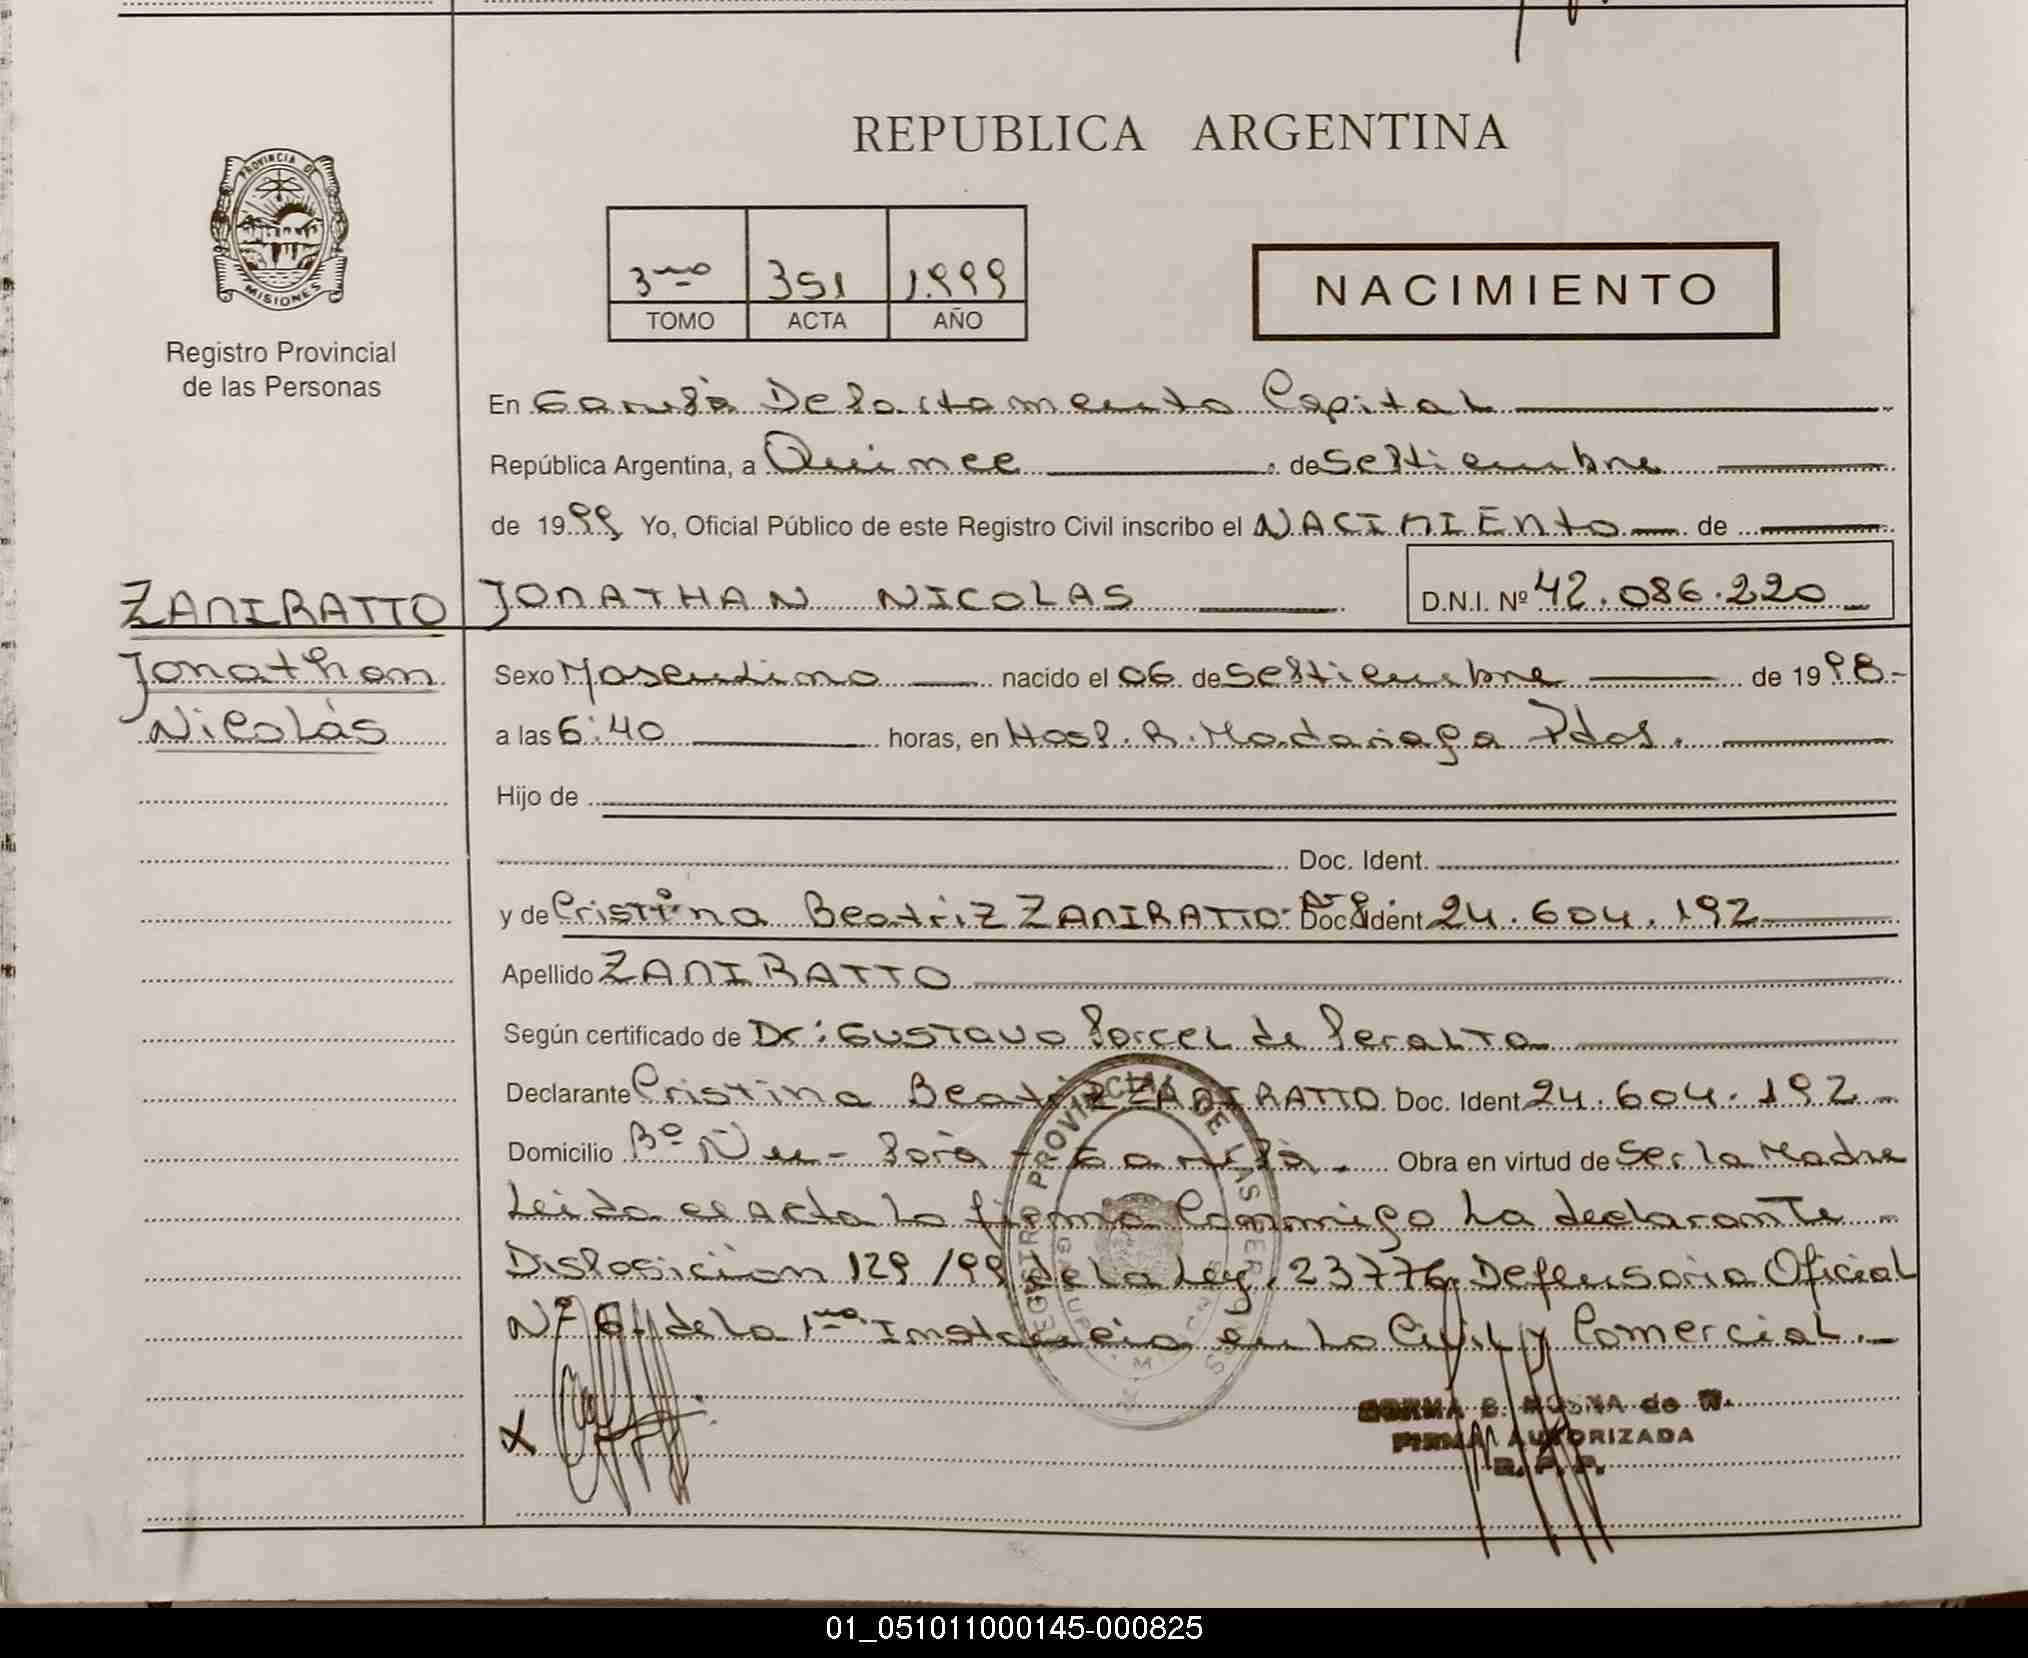 REPUBLICA ARGENTINA
PROVINCIA DE
MISIONES
Registro Provincial
de las Personas
3ero 351 1.999
TOMO ACTA AÑO
NACIMIENTO
En Garupá Departamento Capital
República Argentina, a Quince de Septiembre
de 1999 Yo, Oficial Público de este Registro Civil inscribo el NACIMIENTO de
ZANIRATTO JONATHAN NICOLAS D.N.I. Nº 42.086.220
Jonathan
Nicolás
Sexo Masculino nacido el 06 de Septiembre de 1998-
a las 6:40 horas, en Hosp. R. Madariaga Pdas.
Hijo de
Doc. Ident.
y de Cristina Beatriz ZANIRATTO Doc. Ident 24.604.192
Apellido ZANIRATTO
Según certificado de Dr: Gustavo Porcel de Peralta
Declarante Cristina Beatriz ZANIRATTO Doc. Ident 24.604.192
Domicilio Bº Ñu-Porá - Garupá. Obra en virtud de Ser la Madre
Leida el acta la firma conmigo la declarante
Disposición 129/99 de la Ley. 23776 Defensoria Oficial
Nº 6 de la 1era Instancia en lo Civil y Comercial.-
REGISTRO PROVINCIAL DE LAS PERSONAS
X
NORMA B. de W.
FIRMA AUTORIZADA
R. P. P.
01_051011000145-000825